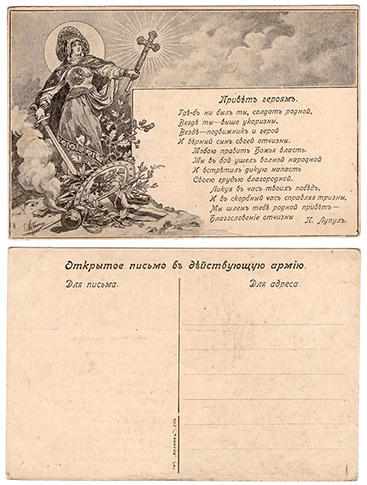 Привѣтъ героямъ.
Гдѣ-бъ ни былъ ты, солдатъ родной,
Вездѣ ты—выше укоризны,
Вездѣ—подвижникъ и герой
И вѣрный сынъ своей отчизны.
Тобою править Божья власть.
Мы въ бой ушелъ волной народной
И встрѣтилъ дикую напасть
Своею грудью благородной.
Ликуя въ часъ твоихъ побѣдъ,
И въ скорбный часъ справляя тризны,
Мы шлемъ тебѣ родной привѣтъ—
Благословение отчизны
П. Лупулъ.
Открытое письмо въ дѣйствующую армію.
Для письма.
Для адреса